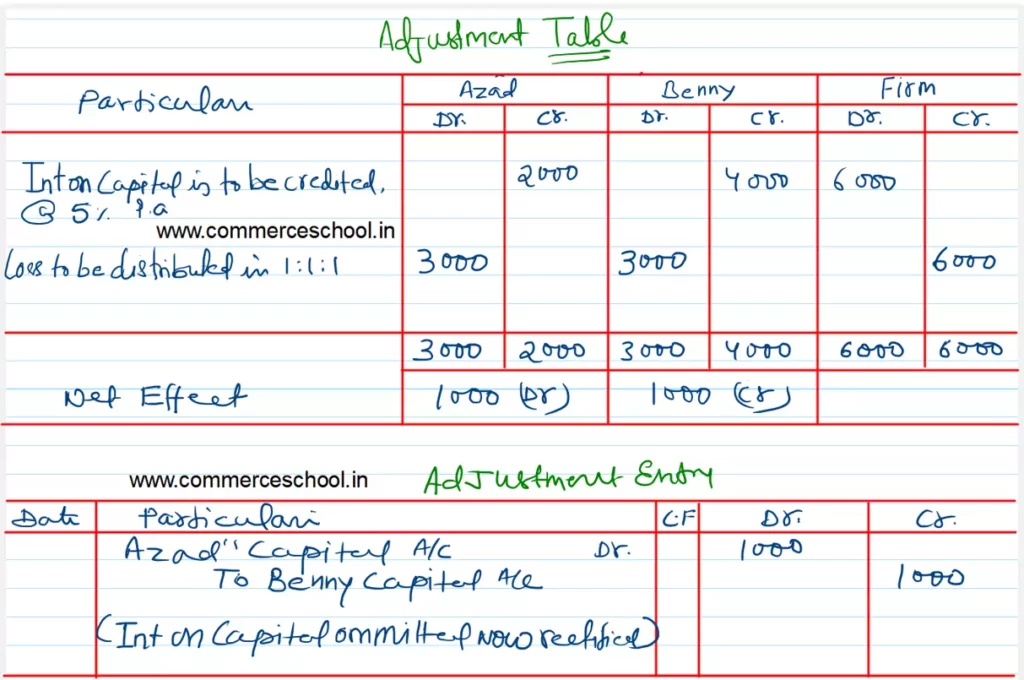 Adjustment Table
Particulars Azad Benny Firm
Dr. Cr. Dr. Cr. Dr. Cr.
Int on Capital is to be credited. 2000 4000 6000
@ 5% P.a
www.commerceschool.in
Loss to be distributed in 1:1:1 3000 3000 6000
3000 2000 3000 4000 6000 6000
Net Effect 1000 (Dr) 1000 (Cr)
www.commerceschool.in Adjustment Entry
Date Particulars C.F Dr. Cr.
Azad's Capital A/c Dr. 1000
To Benny Capital A/c 1000
(Int on Capital ommitted now rectified)